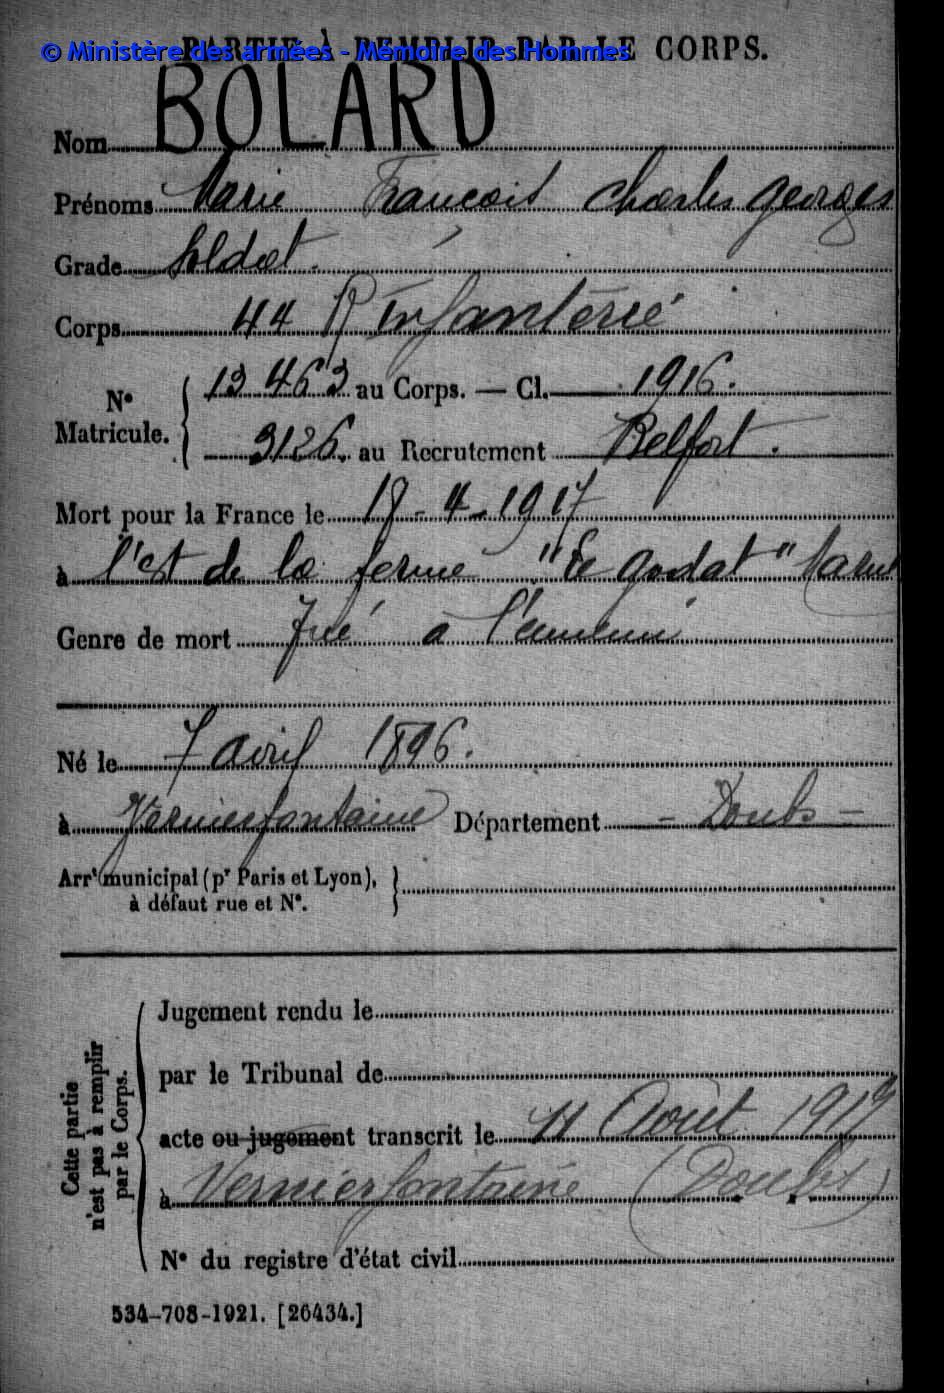 PARTIE À REMPLIR PAR LE CORPS.
© Ministère des armées - Mémoire des Hommes
Nom BOLARD
Prénoms Marie François Charles Georges
Grade Soldat.
Corps 44 R Infanterie
N° Matricule. { 13 463 au Corps. — Cl. 1916.
3126. au Recrutement Belfort.
Mort pour la France le 18-4-1917
à l'Est de la ferme "Le godat" Marne
Genre de mort Tué à l'ennemi
Né le 7 avril 1896.
à Vernierfontaine Département - Doubs -
Arrt municipal (pr Paris et Lyon), }
à défaut rue et N°.
Cette partie n'est pas à remplir par le Corps.
Jugement rendu le
par le Tribunal de
acte ou jugement transcrit le 11 Août 1917
à Vernierfontaine (Doubs)
N° du registre d'état civil
534-708-1921. [26434.]